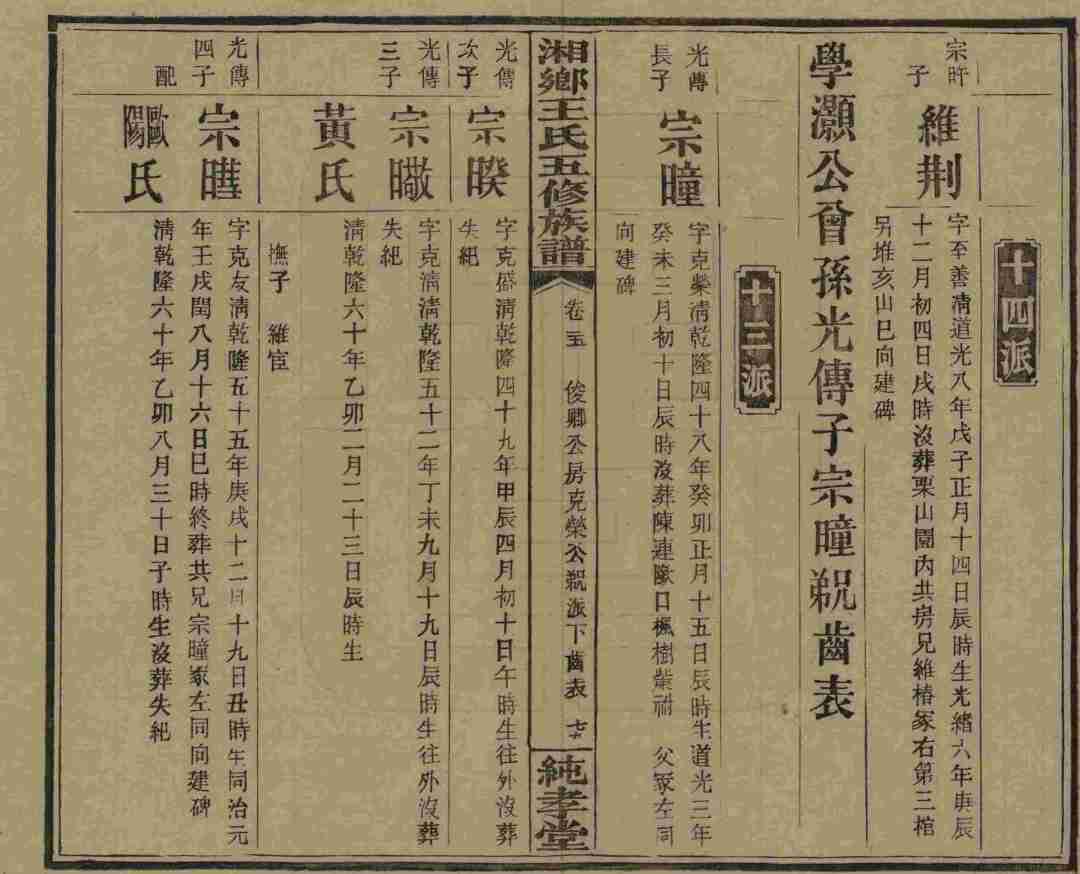 十四派
宗旿子
維荆
字至善清道光八年戊子正月十四日辰時生光緒六年庚辰
十二月初四日戌時沒葬栗山園內共房兄維椿冢右第三棺
另堆亥山巳向建碑
學灝公曾孫光傳子宗曈祝齒表
十三派
光傳長子
宗曈
字克榮清乾隆四十八年癸卯正月十五日辰時生道光三年
癸未三月初十日辰時沒葬陳連口楓樹 父冢左同
向建碑
湘鄉王氏五修族譜
卷
俊卿公房克榮公派下齒表
純孝堂
光傳次子
宗暌
字克盛清乾隆四十九年甲辰四月初十日午時生往外沒葬
失紀
光傳三子
宗暾
字克清清乾隆五十二年丁未九月十九日辰時生往外沒葬
失紀
黃氏
清乾隆六十年乙卯二月二十三日辰時生
撫子 維宦
光傳四子
宗
字克友清乾隆五十五年庚戌十二月十九日丑時生同治元
年壬戌閏八月十六日巳時終葬共兄宗曈冢左同向建碑
配
歐陽氏
清乾隆六十年乙卯八月三十日子時生沒葬失紀